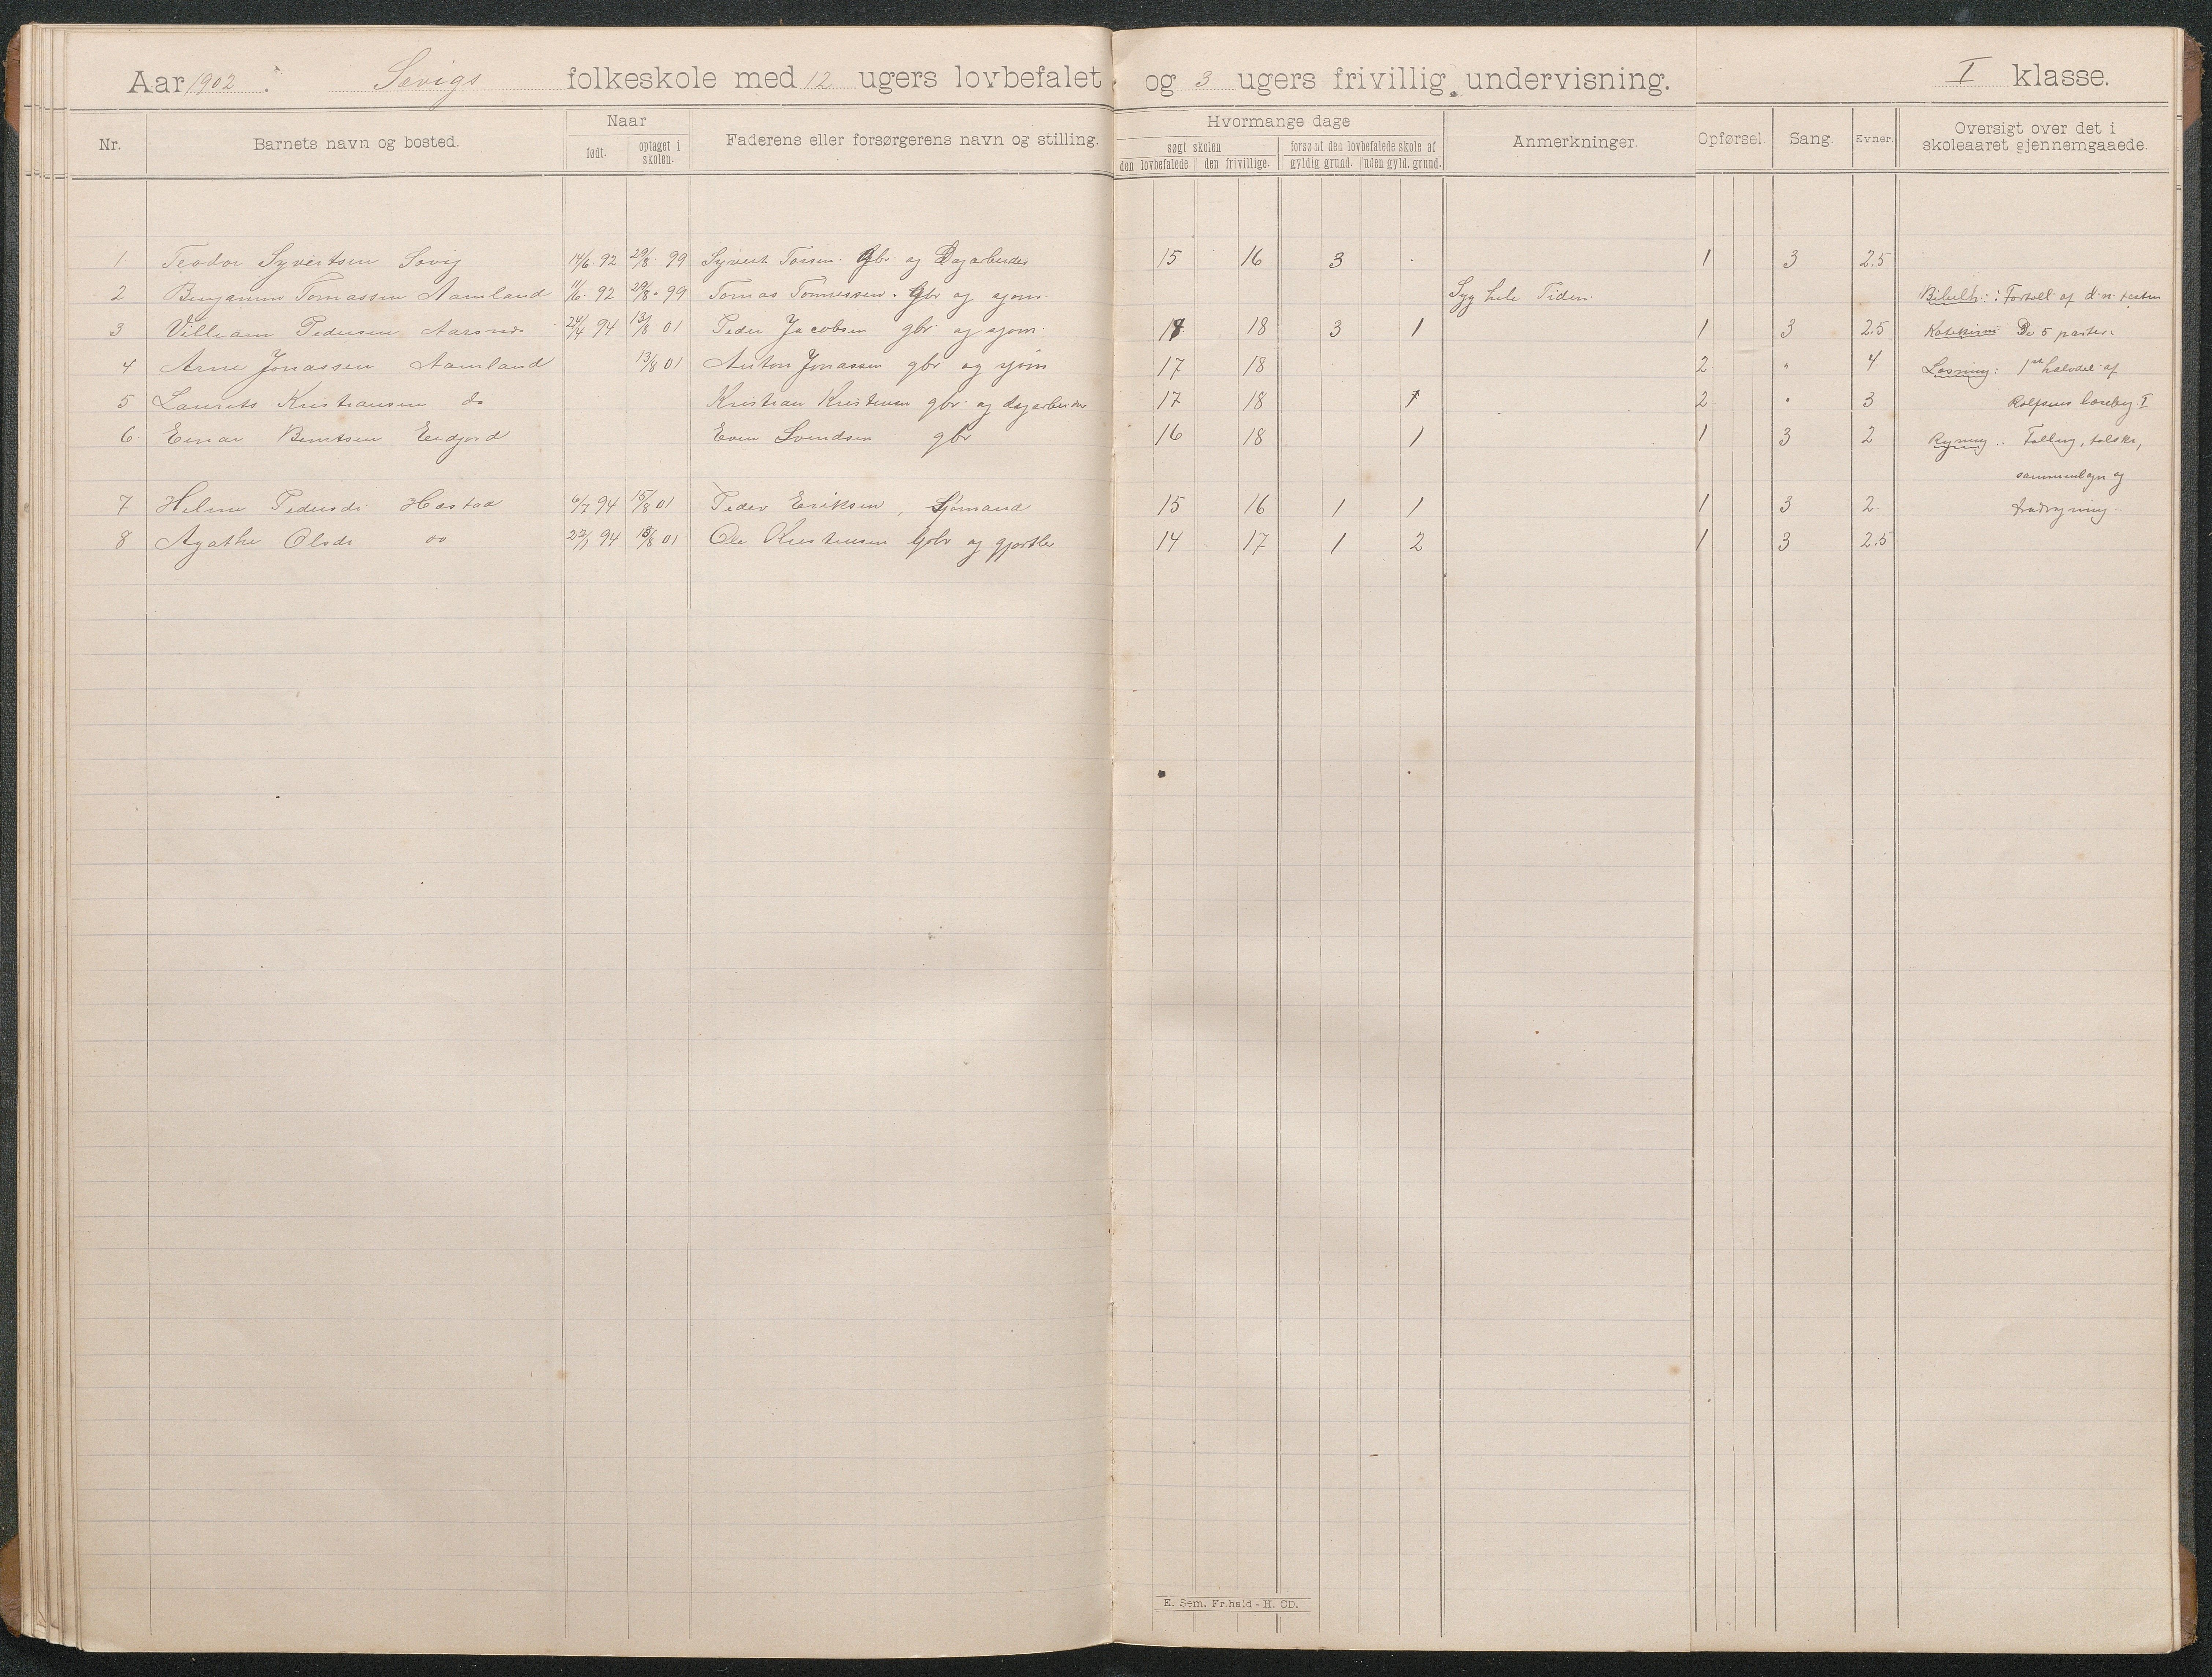 Aar 1902. Sevigs folkeskole med 12 ugers lovbefalet og 3 ugers frivillig undervisning. I klasse.
Nr. Barnets navn og bosted. Naar født. optaget i skolen. Faderens eller forsørgerens navn og stilling. Hvormange dage søgt skolen den lovbefalede den frivillige. forsømt den lovbefalede skole af gyldig grund. uden gyld. grund. Anmerkninger. Opførsel Sang. Evner. Oversigt over det i skoleaaret gjennemgaaede.
1 Teodor Syvertsen Sevig 14/6 92 29/8 99 Syvert Torsen. Gbr. og Dagarbeider 15 16 3 1 3 2.5
2 Benjamin Tomassen Aamland 11/6 92 29/8 99 Tomas Tomessen. Gbr og sjøm. Syg hele Tiden. Bibelh.: Fortæll af d. n. testm
3 Villiam Pedersen Aarsnes 24/4 94 13/8 01 Peder Jacobsen gbr. og sjøm. 18 3 1 1 3 2.5 De 5 parter.
4 Arne Jonassen Aamland 13/8 01 Anton Jonassen gbr og sjøm 17 18 2 " 4 Læsning: 1ste halvdel af
5 Laurits Kristiansen do Kristian Kristensen gbr. og dagarbeider 17 18 1 2 " 3 Rolfsens læsebog I
6 Einar Berntsen Eidjord Even Svendsen gbr 16 18 1 1 3 2 Regning.
sammenlægn og
7 Helene Pedersdr Hæstad 6/7 94 15/8 01 Peder Eriksen, Sjømand 15 16 1 1 1 3 2
8 Agathe Olsdr do 22/1 94 13/8 01 Ole Kristensen Gbr og gjørtler 14 17 1 2 1 3 2.5
E. Sem. Fr.hald - H. CD.